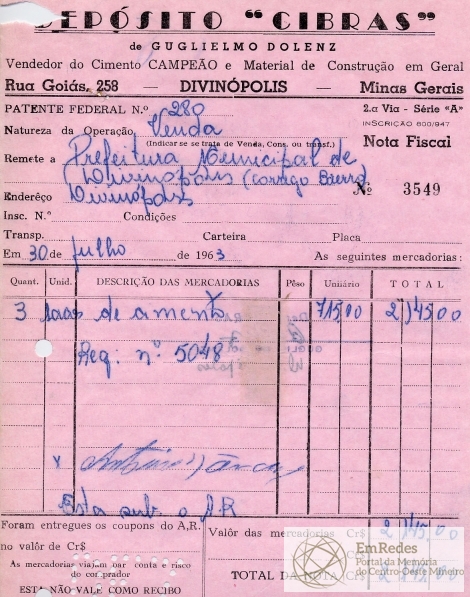 DEPÓSITO "CIBRAS"
de GUGLIELMO DOLENZ
Vendedor do Cimento CAMPEÃO e Material de Construção em Geral
Rua Goiás, 258 — DIVINÓPOLIS — Minas Gerais
PATENTE FEDERAL N.º 280 2.a Via - Série "A"
INSCRIÇÃO 600/947
Natureza da Operação, Venda
(Indicar se se trata de Venda, Cons. ou transf.) Nota Fiscal
Remete a Prefeitura Municipal de
Divinópolis (corrego Barro)
Nº 3549
Endereço Divinópolis
Insc. N.º Condições
Transp. Carteira Placa
Em 30 de julho de 1963 As seguintes mercadorias:
Quant. Unid. DESCRIÇÃO DAS MERCADORIAS Pêso Unitário TOTAL
3 sacos de cimento 715,00 2 145,00
Req: nº 5048
x
Esta sub. o A.R
Foram entregues os coupons do A,R.
no valor de Cr$
As mercadorias viajam por conta e risco
do comprador
ESTA NÃO VALE COMO RECIBO
Valor das mercadorias Cr$ 2 145,00
Cr$
TOTAL DA NOTA Cr$ 2 145,00
EmRedes
Portal da Memória
do Centro-Oeste Mineiro